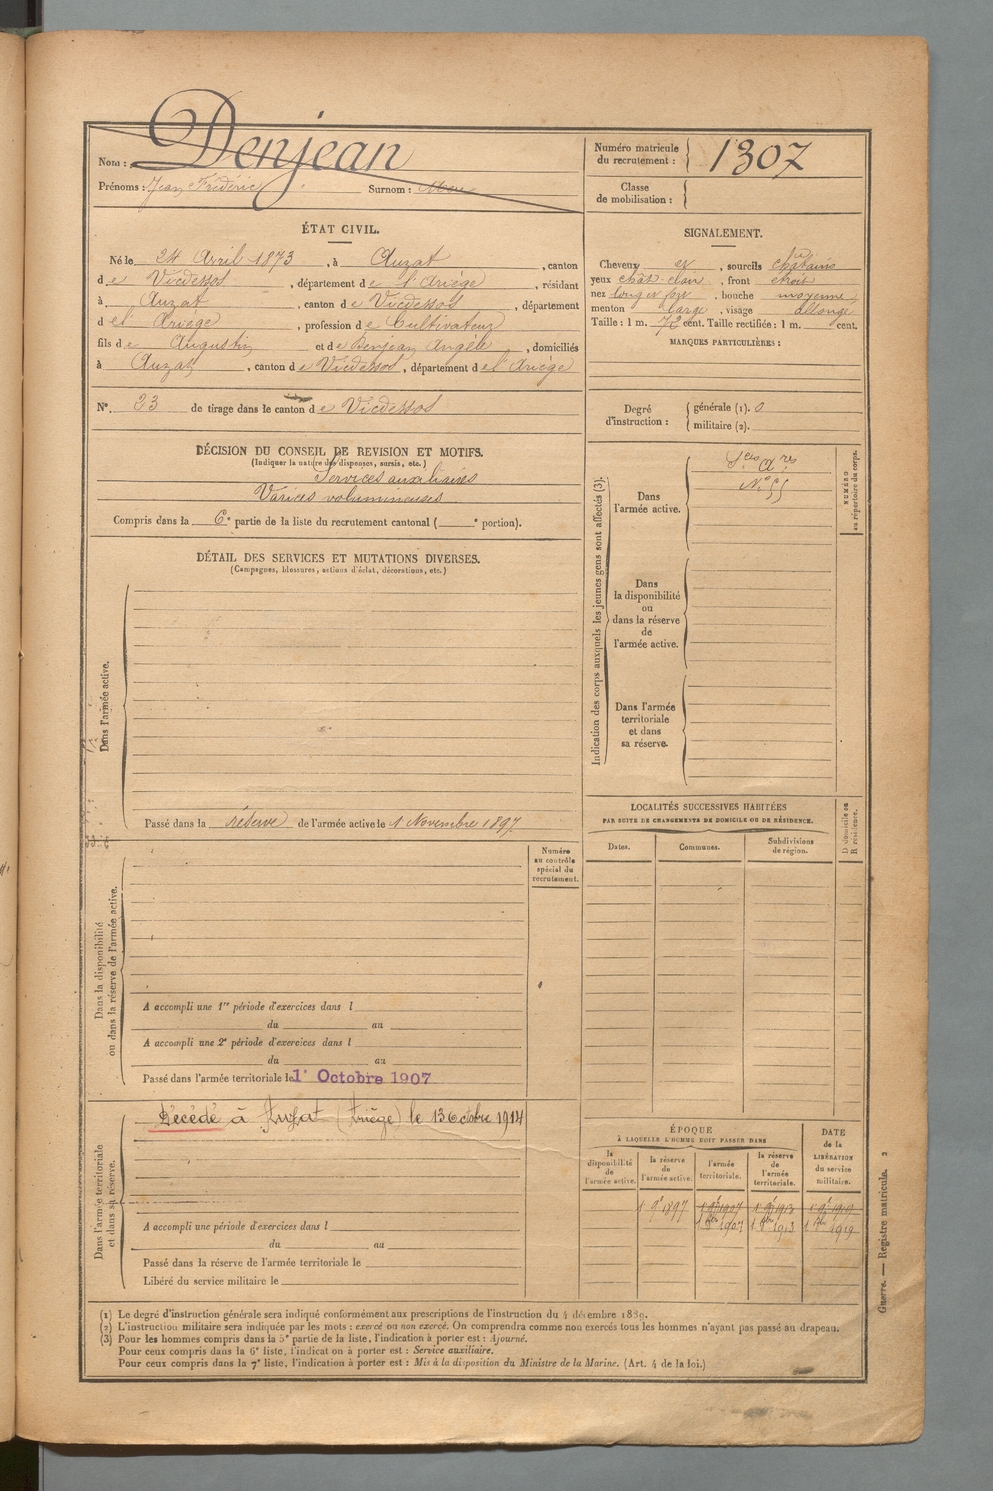 Nom : Denjean
Prénoms : Jean Frédéric Surnom :
Numéro matricule du recrutement : 1307
Classe de mobilisation :
ÉTAT CIVIL.
Né le 24 Avril 1873, à Auzat, canton
de Vicdessos, département de l'Ariége, résidant
à Auzat, canton de Vicdessos, département
de l'Ariége, profession de Cultivateur
fils de Augustin et de Denjean Angèle, domiciliés
à Auzat, canton de Vicdessos, département de l'Ariége
N° 23 de tirage dans le canton de Vicdessos
SIGNALEMENT.
Cheveux et, sourcils châtains
yeux chât-clair, front étroit
nez long et fort, bouche moyenne,
menton large, visage allongé
Taille : 1 m. 72 cent. Taille rectifiée : 1 m. cent.
MARQUES PARTICULIÈRES :
Degré d'instruction : générale (1). 0
militaire (2).
DÉCISION DU CONSEIL DE REVISION ET MOTIFS.
(Indiquer la nature des dispenses, sursis, etc.)
Services auxiliaires
Varices volumineuses
Compris dans la 6e partie de la liste du recrutement cantonal ( e portion).
DÉTAIL DES SERVICES ET MUTATIONS DIVERSES.
(Campagnes, blessures, actions d'éclat, décorations, etc.)
Dans l'armée active.
Passé dans la réserve de l'armée active le 1 Novembre 1897
Indication des corps auxquels les jeunes gens sont affectés (3).
Dans l'armée active.
Sces Ares
N° 55
NUMÉRO au répertoire du corps.
Dans la disponibilité ou dans la réserve de l'armée active.
Dans l'armée territoriale et dans sa réserve.
LOCALITÉS SUCCESSIVES HABITÉES
PAR SUITE DE CHANGEMENTS DE DOMICILE OU DE RÉSIDENCE.
D domicile ou R résidence.
Dates. Communes. Subdivisions de région.
Numéro au contrôle spécial du recrutement.
Dans la disponibilité ou dans la réserve de l'armée active.
A accompli une 1re période d'exercices dans l
du au
A accompli une 2e période d'exercices dans l
du au
Passé dans l'armée territoriale le 1er Octobre 1907
Dans l'armée territoriale et dans sa réserve.
Décédé à Auzat (Ariège) le 13 Octobre 1914
A accompli une période d'exercices dans l
du au
Passé dans la réserve de l'armée territoriale le
Libéré du service militaire le
ÉPOQUE
À LAQUELLE L'HOMME DOIT PASSER DANS
DATE de la LIBÉRATION du service militaire.
la disponibilité de l'armée active. la réserve de l'armée active. l'armée territoriale. la réserve de l'armée territoriale.
1 9e 1897 1 9e 1907 1 9e 1913 1 9e 1919
1 8bre 1907 1 8bre 1913 1 8bre 1919
Guerre. — Registre matricule. 2
(1) Le degré d'instruction générale sera indiqué conformément aux prescriptions de l'instruction du 4 décembre 1889.
(2) L'instruction militaire sera indiquée par les mots : exercé ou non exercé. On comprendra comme non exercés tous les hommes n'ayant pas passé au drapeau.
(3) Pour les hommes compris dans la 5e partie de la liste, l'indication à porter est : Ajourné.
Pour ceux compris dans la 6e liste, l'indication à porter est : Service auxiliaire.
Pour ceux compris dans la 7e liste, l'indication à porter est : Mis à la disposition du Ministre de la Marine. (Art. 4 de la loi.)